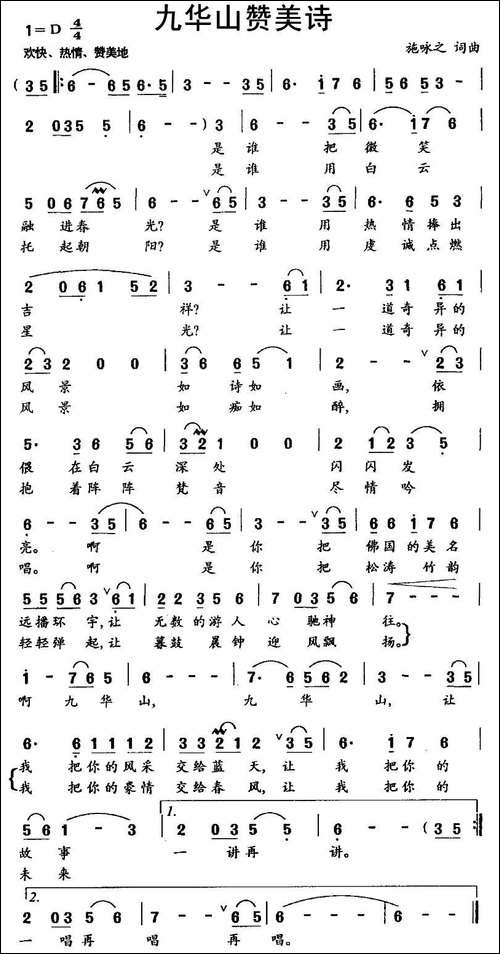 九华山赞美诗
1=D 4/4
欢快、热情、赞美地
施咏之 词曲
(3 5 |: 6 - 6 5 6· 5 | 3 - - 3 5 | 6· 1 7 6 |
2 0 3 5 5 5 | 6 - - ) 3 | 6 - - 3 5 | 6· 1 7 6 |
是 谁 把 微 笑
是 谁 用 白 云
5 0 6 7 6 6 5 | 6 - - ∨ 6 5 | 3 - - 3 5 | 6· 6 5 3 |
融 进春 光? 是 谁 用 热 情捧出
托 起朝 阳? 是 谁 用 虔 诚点燃
2 0 6 1 5 2 | 3 - - 6 1 | 2· 3 3 1 | 2· 3 6 1 |
吉 祥? 让 一 道奇 异的
星 光? 让 一 道奇 异的
2 3 2 0 0 | 3 6 6 5 1 | 2 - - ∨ 2 3 |
风 景 如 诗如 画, 依
风 景 如 痴如 醉, 拥
5· 3 6 5 6 | 3 2 1 0 0 | 2 1 2 3 5 |
偎 在白 云 深 处 闪 闪 发
抱 着阵 阵 梵 音 尽 情 吟
6 - - 3 5 | 6 - - 6 5 | 3 - - ∨ 3 5 | 6 6 1 7 6 |
亮。 啊 是 你 把 佛国的美名
唱。 啊 是 你 把 松涛 竹韵
5 5 5 6 3 ∨ 6 1 | 2 2 3 1 2 6 | 7 0 3 5 6 | 7 - - - |
远播环 宇,让 无数的游人 心 驰神 往。
轻轻弹 起,让 暮鼓 晨钟 迎 风飘 扬。}
1 - 7 6 5 | 6 - - - | 7· 6 5 6 2 | 3 - - 3 5 |
啊 九 华 山, 九 华 山, 让
6· 6 1 1 1 2 | 3 3 2 1 2 ∨ 3 5 | 6· 1 7 6 |
我 把你的风采 交给蓝 天,让 我 把你 的
{我 把你的豪情 交给春 风,让 我 把你 的
5 6 1 - 3 | 1. 2 0 3 5 5 5 | 6 - - (3 5 :|
故 事 一 讲再 讲。
未 来
2. 2 0 5 3 5 6 | 7 - - ∨ 6 5 | 6 - - - | 6 - - - ||
一 唱再 唱 再 唱。